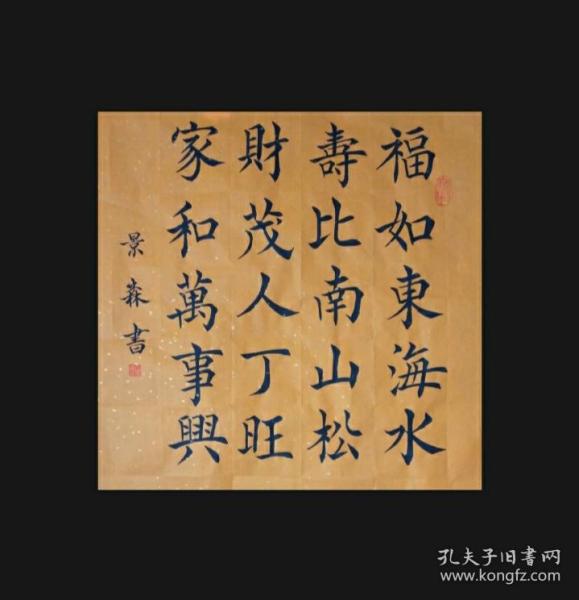 福如東海水
壽比南山松
財茂人丁旺
家和萬事興
景森書
孔夫子旧書网
www.kongfz.com